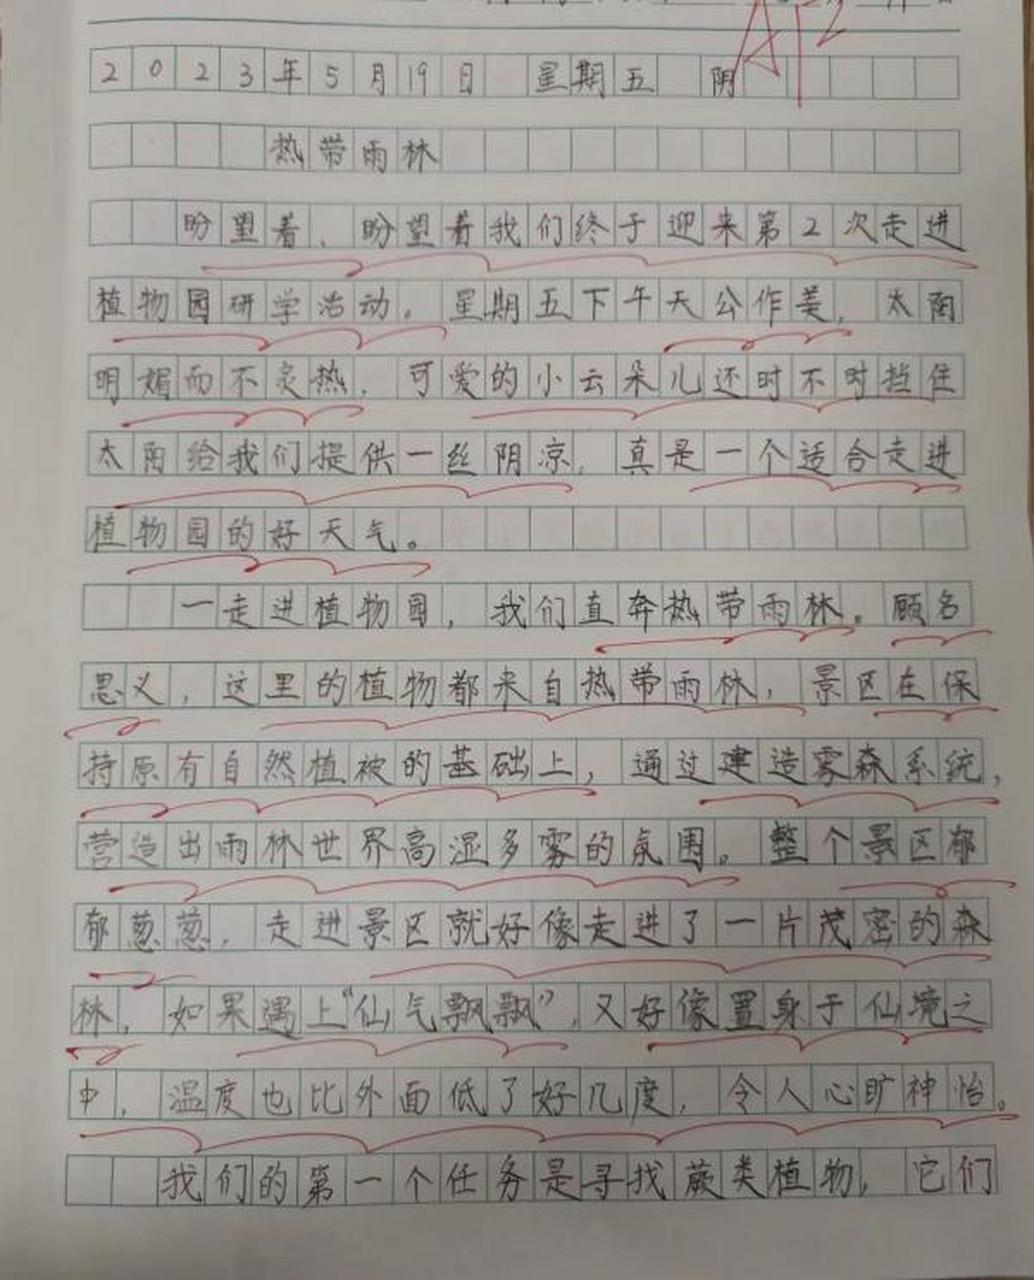 A+2
2023年5月19日 星期五 阴
热带雨林
盼望着、盼望着我们终于迎来第2次走进
植物园研学活动。星期五下午天公作美，太阳
明媚而不炎热，可爱的小云朵儿还时不时挡住
太阳给我们提供一丝阴凉，真是一个适合走进
植物园的好天气。
一走进植物园，我们直奔热带雨林。顾名
思义，这里的植物都来自热带雨林，景区在保
持原有自然植被的基础上，通过建造雾森系统，
营造出雨林世界高湿多雾的氛围。整个景区郁
郁葱葱，走进景区就好像走进了一片茂密的森
林，如果遇上“仙气飘飘”，又好像置身于仙境之
中，温度也比外面低了好几度，令人心旷神怡。
我们的第一个任务是寻找蕨类植物，它们